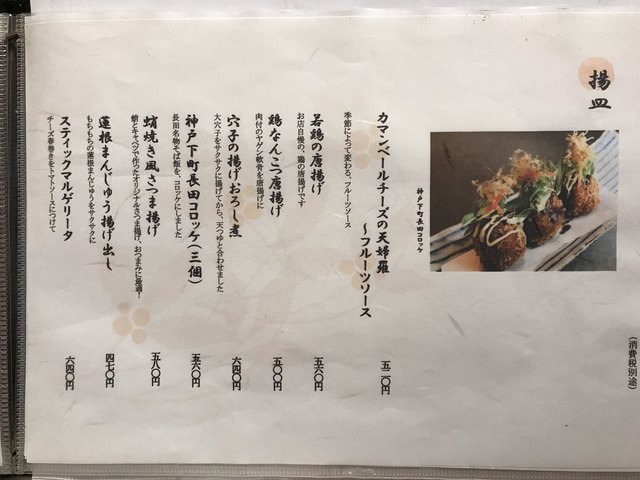 揚皿
神戸下町長田コロッケ
(消費税別途)
カマンベールチーズの天婦羅
～フルーツソース
五二〇円
季節によって変わる、フルーツソース
若鶏の唐揚げ
五六〇円
お店自慢の、鶏の唐揚げです
鶏なんこつ唐揚げ
五〇〇円
肉付のヤゲン軟骨を唐揚げに
穴子の揚げおろし煮
六四〇円
大穴子をサクサクに揚げてから、天つゆと合わせました
神戸下町長田コロッケ(三個)
五六〇円
長田名物そば飯を、コロッケにしました
蛸焼き風さつま揚げ
五八〇円
蛸とキャベツで作ったオリジナルさつま揚げ、おつまみに最適!
蓮根まんじゅう揚げ出し
四七〇円
もちもちの蓮根まんじゅうをサクサクに
スティックマルゲリータ
六四〇円
チーズ春巻きをトマトソースにつけて